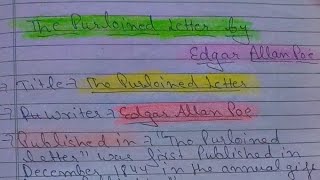 The Purloined Letter by
Edgar Allan Poe
→ Title → The Purloined Letter
→ Writer → Edgar Allan Poe
→ Published in → "The Purloined
letter" was first published in
December, 1844 in the annual gift